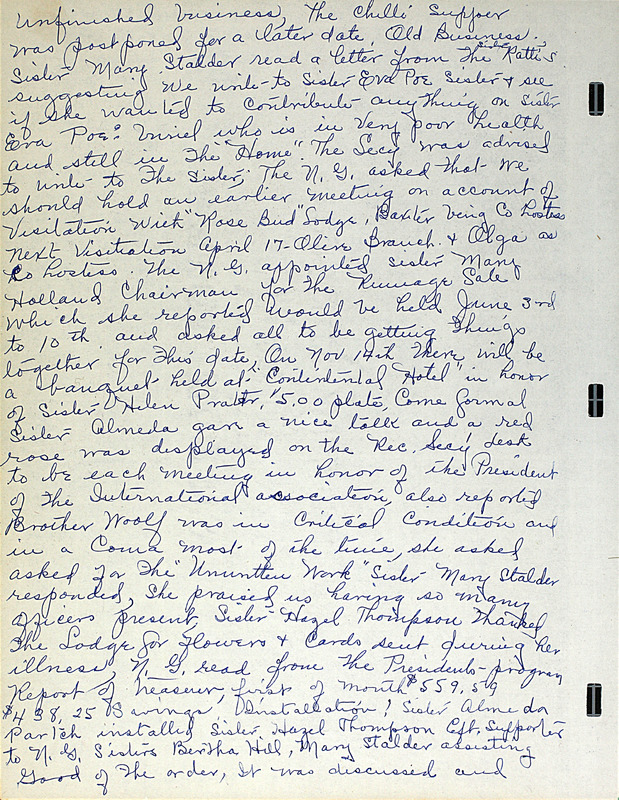 Unfinished business, The chilli Supper
was postponed for a later date, Old Business.
Sister Mary Stalder read a letter from The Sister Ratti's
suggesting We write to Sister Eva Poe Sister & see
if she wanted to Contribute anything on Sister
Eva Poe's who is in very poor health
and still in The "Home". The Secy was advised
to write to The Sister, The N. G. asked That we
should hold an earlier meeting on account of
Visitation With "Rose Bud" Lodge, Baxter being Co hostess
next Visitiation April 17 - Olive Branch & Olga as
Co hostess. The N. G. appointed Sister Mary
Holland Chairman for The Rumage Sale
which she reported would be held June 3rd
to 10th and asked all to be getting Things
together for This date, On Nov 14th There will be
a banquet held at "Contindental Hotel" in honor
of Sister Helen Prater, $5.00 plate, Come formal
Sister Almeda gave a nice talk and a red
rose was displayed on the Rec. Secy' desk
to be each meeting in honor of the President
of The International association, also reported
Brother Woolf was in Critical Condition and
in a Coma most of the time, she asked
asked for The "Unwritten Work" Sister Mary Stalder
responded, She praised us having so many
officers present, Sister Hazel Thompson Thanked
The Lodge for Flowers & Cards sent during her
illness, N. G. read from The Presidents program
Report of Treasurer, first of month $559,59
$438,25 Savings Installation! Sister Almeda
Parich installed Sister Hazel Thompson Lft. Supporter
to N. G. Sisters Bertha Hill, Mary Stalder assisting
Good of The order, It was discussed and